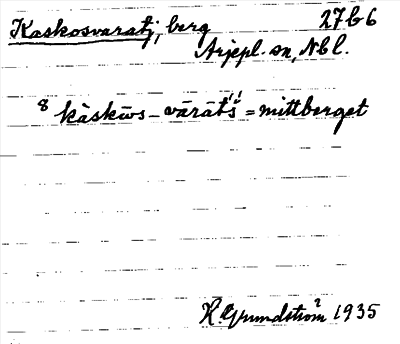 Kaskosvaratj, berg 27b6
Arjepl. sn, Nbl.
8 kàskōs-vārāt'š́ = mittberget
H. Grundström² 1935